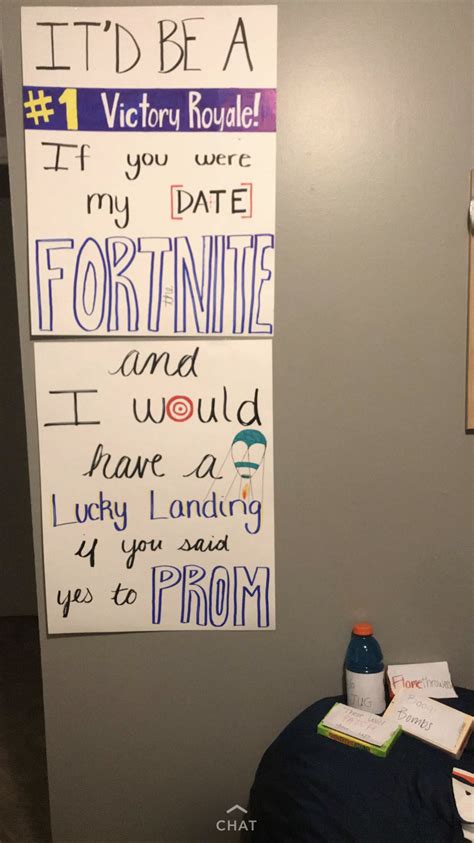 IT'D BE A
#1 Victory Royale!
If you were
my [DATE]
FORTNITE
the
and
I would
have a
Lucky Landing
if you said
yes to PROM
JUG
Flamethrowers
Bombs
CHAT